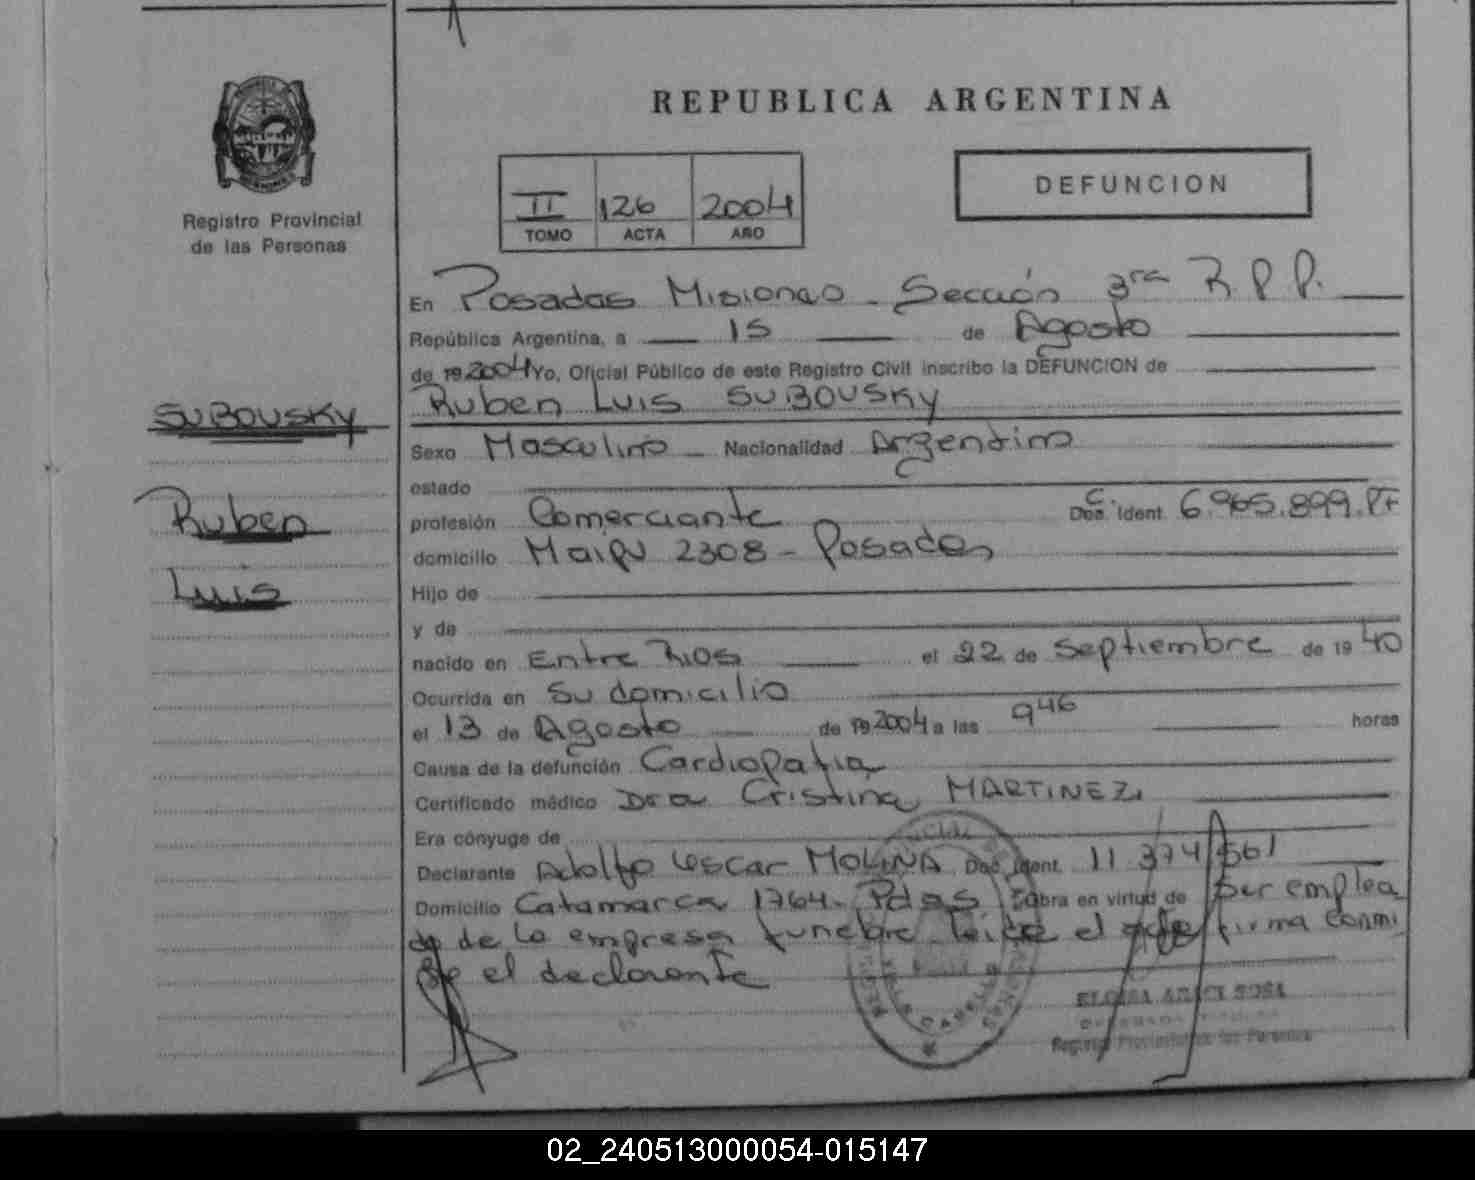 REPUBLICA ARGENTINA
DEFUNCION
II 126 2004
TOMO ACTA AÑO
Registro Provincial
de las Personas
En Posadas Misiones - Sección 3ra R.P.P.
República Argentina, a 15 de Agosto
de 19 2004 Yo, Oficial Público de este Registro Civil inscribo la DEFUNCION de
Ruben Luis SUBOUSKY
SUBOUSKY
Ruben
Luis
Sexo Masculino - Nacionalidad Argentino
estado
profesión Comerciante C. Doc. Ident. 6.965.899.PF
domicilio Maipu 2308 - Posadas
Hijo de
y de
nacido en Entre Rios el 22 de Septiembre de 19 40
Ocurrida en Su domicilio
el 13 de Agosto de 19 2004 a las 9 46 horas
Causa de la defunción Cardiopatia
Certificado médico Dra Cristina MARTINEZ
Era cónyuge de
Declarante Adolfo Oscar MOLINA Doc. Ident. 11.374.561
Domicilio Catamarca 1764. Pdas Obra en virtud de Ser emplea
do de la empresa funebre leida el acta firma conmi
go el declarante
Registro Provincial de las Personas
02_240513000054-015147